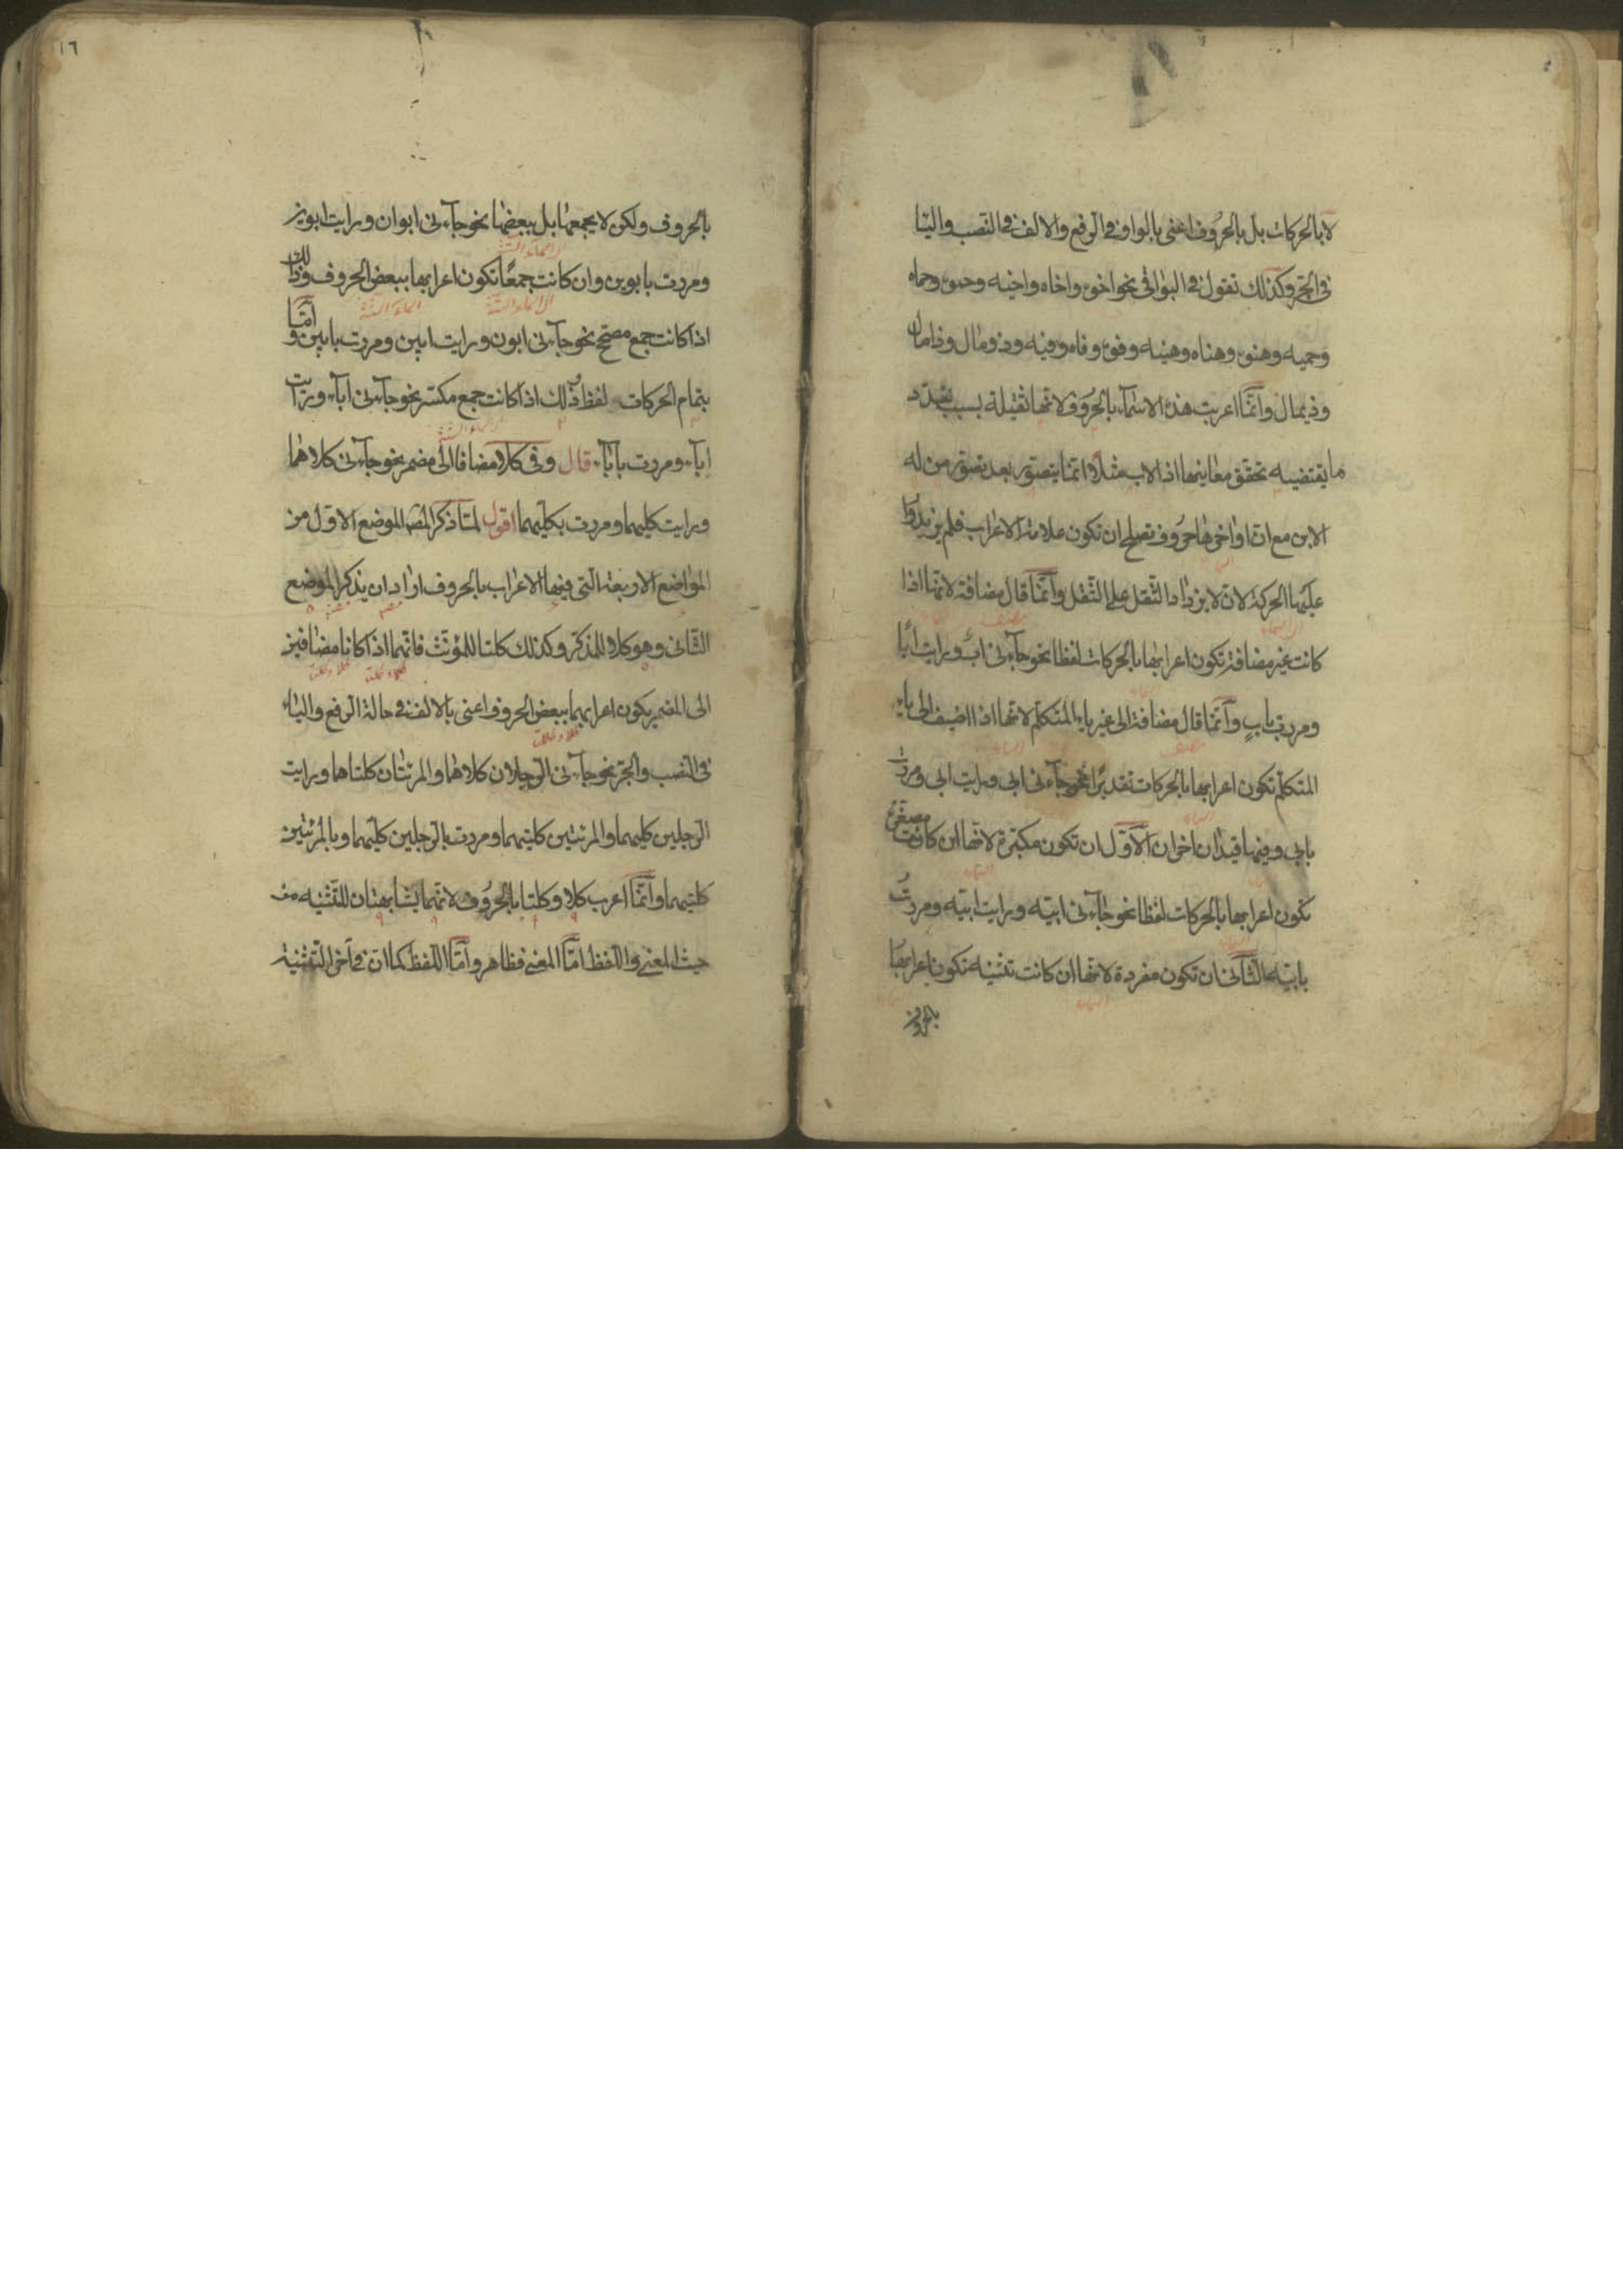 لا بالحركات بل بالحروف اعنى بالواو فى الرفع والالف فى النصب واليا
فى الجر وكذلك تقول فى البواقى نحو اخوه واخاه واخيه وحموه وحماه
وحميه وهنوه وهناه وهنيه وفوه وفاه وفيه وذو مال وذا مال
وذى مال وانّما اعربت هذه الاسماء بالحروف لانها ثقيلة بسبب تعدد
ما يقتضيه تحقق معانيها اذ الاب مثلا انما يتصور بعد تصور من له
الابن مع ان اواخرها حروف تصلح ان تكون علامة الاعراب فلم يزيدوا
عليها الحركة لان لا يزداد الثقل على الثقل وانّما قال مضافة لانها اذا
كانت غير مضافة تكون اعرابها بالحركات لفظا نحو جآءنى ابٌ ورايت ابًا
ومررت بابٍ وانّما قال مضافة الى غير ياء المتكلم لانها اذا اضيف الى ياء
المتكلم تكون اعرابها بالحركات تقديرا نحو جآءنى ابى ورايت ابى ومررت
بابى وفيها قيدان اخران الاوّل ان تكون مكبّرة لانها ان كانت مصغّرة
تكون اعرابها بالحركات لفظا نحو جآءنى ابيّه ورايت ابيّه ومررت
بابيّه الثانى ان تكون مفردة لانها ان كانت تثنيه تكون اعرابها
بالحروف
١٦
بالحروف ولكن لا بجمعها بل ببعضها نحو جآءنى ابوان ورايت ابوين
ومررت بابوين وان كانت جمعًا تكون اعرابها ببعض الحروف وذلك
اذا كانت جمع مصحّح نحو جآءنى ابون ورايت ابين ومررت بابين وامّا
بتمام الحركات لفظا وذلك اذا كانت جمع مكسّر نحو جآءنى آباء ورايت
آباء ومررت بآباء قال وفى كلا مضافا الى مضمر نحو جآءنى كلاهما
ورايت كليهما ومررت بكليهما اقول لمّا ذكر المص الموضع الاوّل من
المواضع الاربعة الّتى فيها الاعراب بالحروف اراد ان يذكر الموضع
الثّانى وهو كلا للمذكّر وكذلك كلتا للمؤنّث فانهما اذا كانا مضافين
الى المضمر يكون اعرابهما ببعض الحروف اعنى بالالف فى حالة الرفع والياء
فى النصب والجرّ نحو جآءنى الرّجلان كلاهما والمرئتان كلتاهما ورايت
الرّجلين كليهما والمرئتين كلتيهما ومررت بالرّجلين كليهما وبالمرئتين
كلتيهما وانّما اعرب كلا وكلتا بالحروف لانهما يشابهتان للتّثنيه من
حيث المعنى واللفظ امّا المعنى فظاهر وامّا اللّفظ كما انّ فى آخر التّثنية